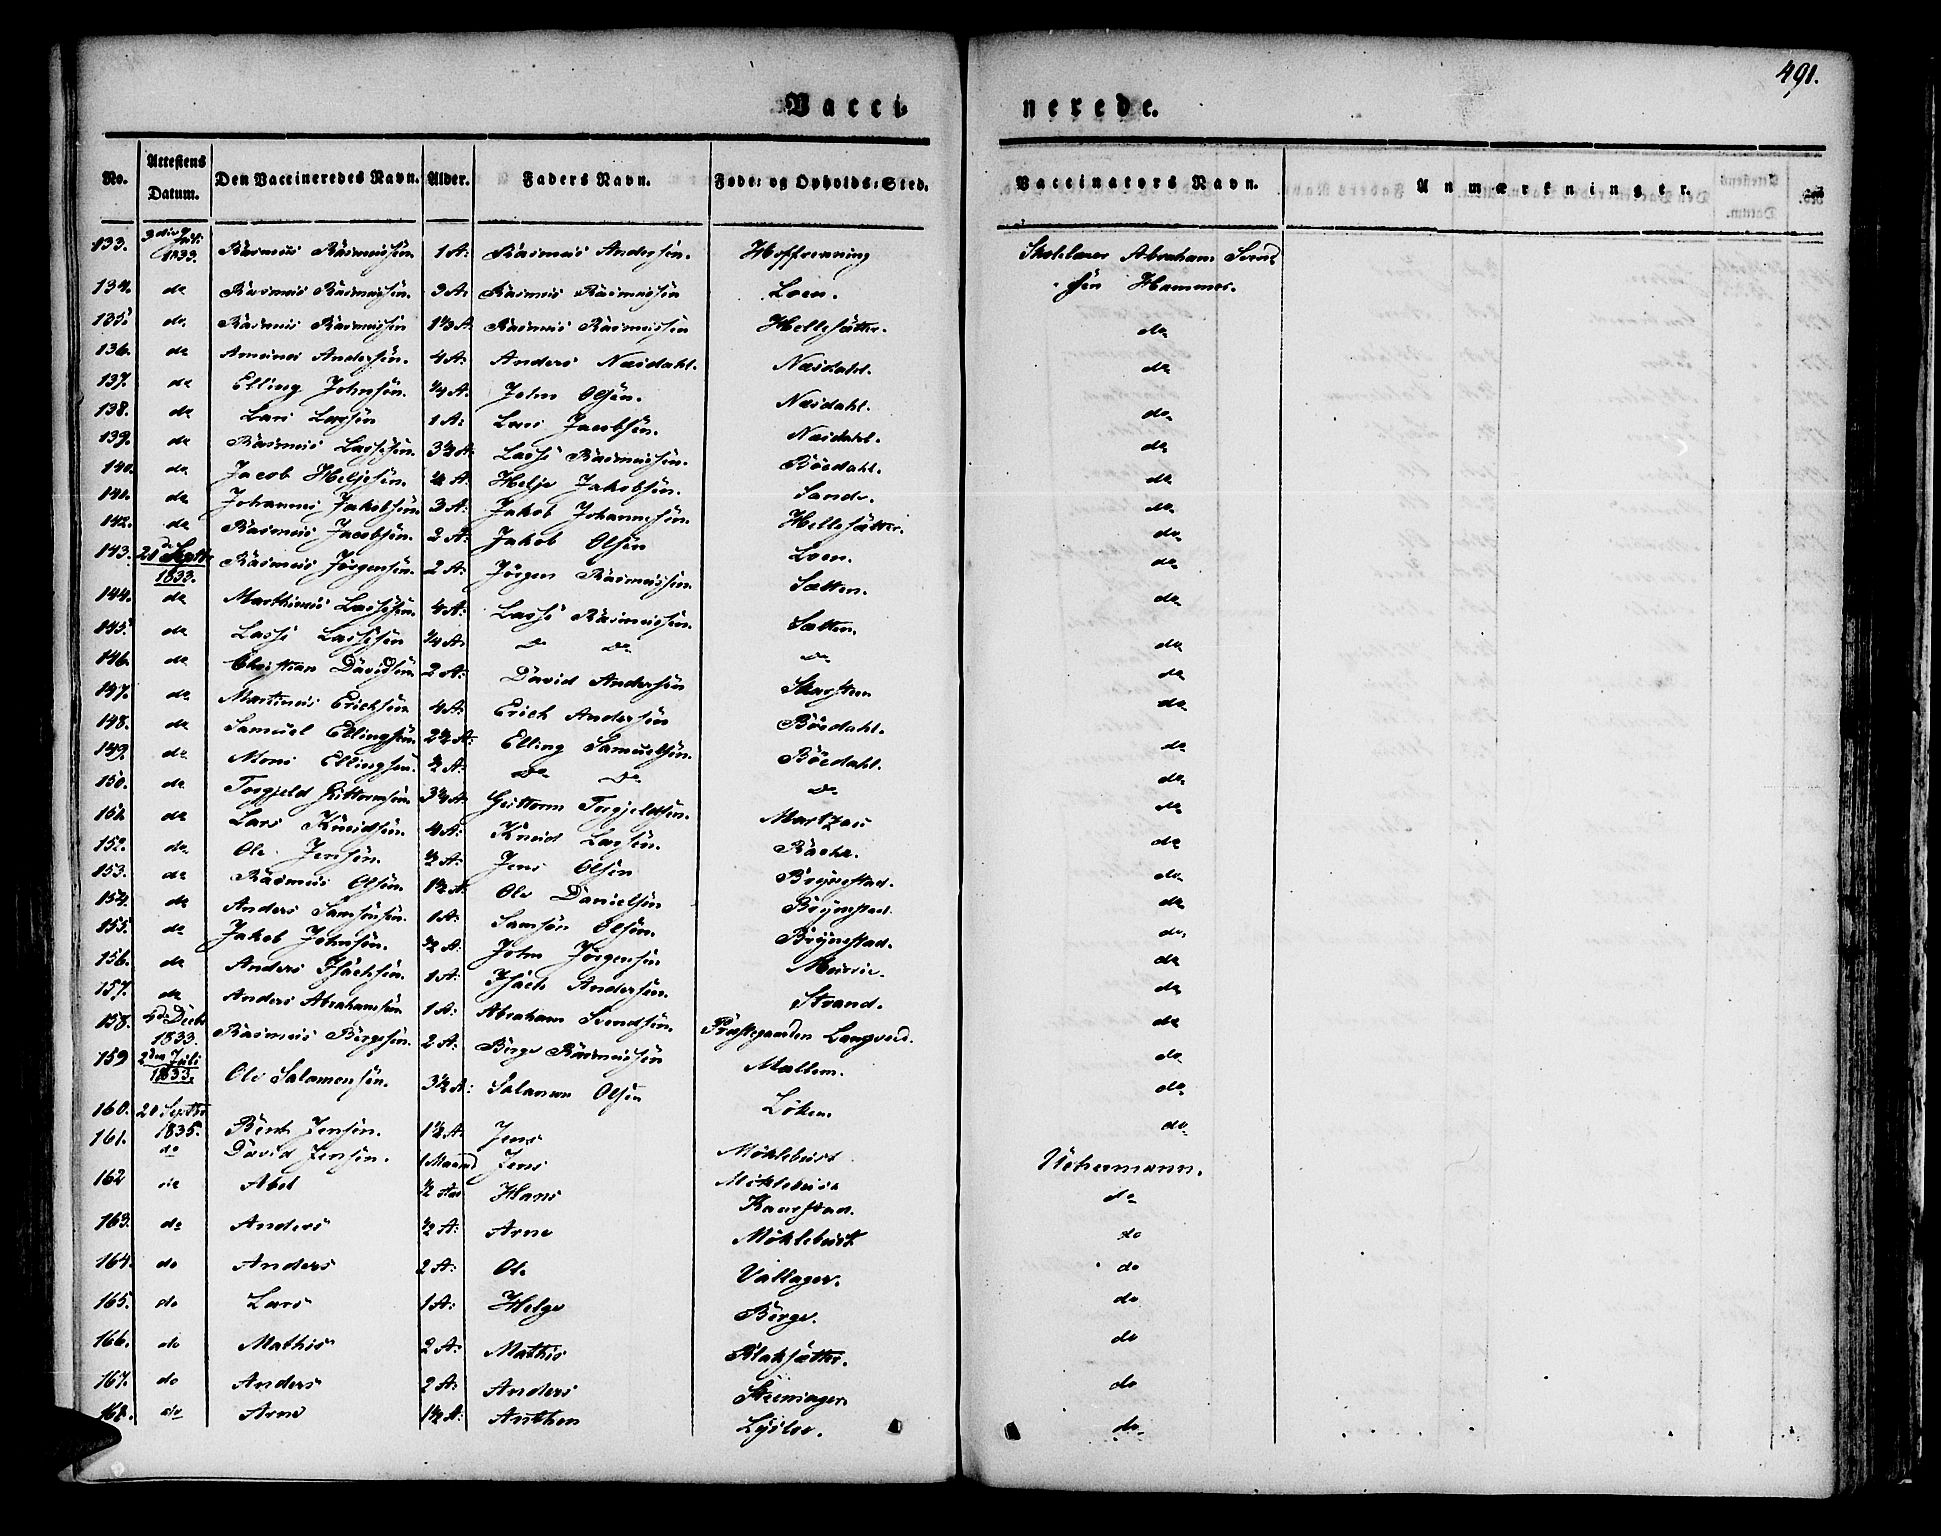 491.
Vacci- nerede.
No. Attestens Datum. Den Vaccineredes Navn. Alder. Faders Navn. Føde- og Opholds-Sted. Vaccinators Navn. Anmærkninger.
133. 1833. Rasmus Rasmussen. 1 A: Rasmus Andersen. Skolelærer Abraham Svend
134. do Rasmus Rasmussen. 3 A: Rasmus Rasmussen Loen. sen Hammer.
135. do. Rasmus Rasmussen 1½ A: Rasmus Rasmussen Hellesætter. do
136. do Andersen. 4 A: Anders Nesdahl. Nesdahl. do
137. do Elling Johnsen. ¼ A: John Olsen. Nesdahl. do
138. do Lars Larsen 1 A: Lars Jacobsen. Nesdahl. do
139. do Rasmus Lassesen. Lasse Rasmussen. Bøedahl. do
140. do Jacob Heljesen. Helje Jakobsen. Sande. do
141. do Johannes Jakobsen. 3 A: Jakob Johannesen. Hellesætter. do
142. do Rasmus Jacobsen. 2 A: Jakob Olsen Loen. do
143. 20de Septb. 1833. Rasmus Jørgensen. 2 A: Jørgen Rasmussen. Sætten. do
144. do Mathias Lassesen. 4 A: Lasse Rasmussen. Sætten. do
145. do Lasse Lassesen ¼ A: Do Do Do do
146. do Christian Davidsen 2 A: David Andersen Skarsten do
147. do Martinus Erichsen 4 A: Erich Andersen Bøedahl. do
148. do Samuel Ellingsen. 2½ A: Elling Samuelsen. Bøedahl. do
149. do Mons Ellingsen. ½ A: Do Do Do do
150. do Torgjeld Guttormsen Guttorm Torgjeldsen. do
151. do Lars Knudsen. 4 A: Knud Larsen. do
152. do Ole Jensen. ½ A: Jens Olsen Brynestad. do
153. do Rasmus Olsen. 1½ A: Ole Danielsen Brynestad. do
154. do Anders Samsonsen. 1 A: Samson Olsen. Brynestad. do
155. do Jakob Johnsen. ½ A: John Jørgensen do
156. do Anders Isachsen. 1 A: Isach Andersen. Strand. do
157. do Anders Abrahamsen 1 A: Abraham Svendsen. Præstegaarden do
158. Decbr 1833. Rasmus Børgesen. 2 A: Børge Rasmussen do
159 2den Juli 1833. Ole Salamonsen. 3½ A: Salamon Olsen Løken do
160. 20 Septbr 1835. Bent Jensen. 1½ A: Jens Møklebust
161. do David Jensen. 1 Maaned Jens Møklebust Uchermann.
162 do Abel ½ Aar Hans Kaarstad. do
163. do Anders ½ A: Arne Møklebust do
164. do Anders 2 A: Ole Vallager. do
165. do Lars 1 A: Helge Berge. do
166. do Mathis 2 A: Mathis Blaksætter. do
167. do Anders 2 A: Anders do
168. do Arne 1½ A: Anthon do